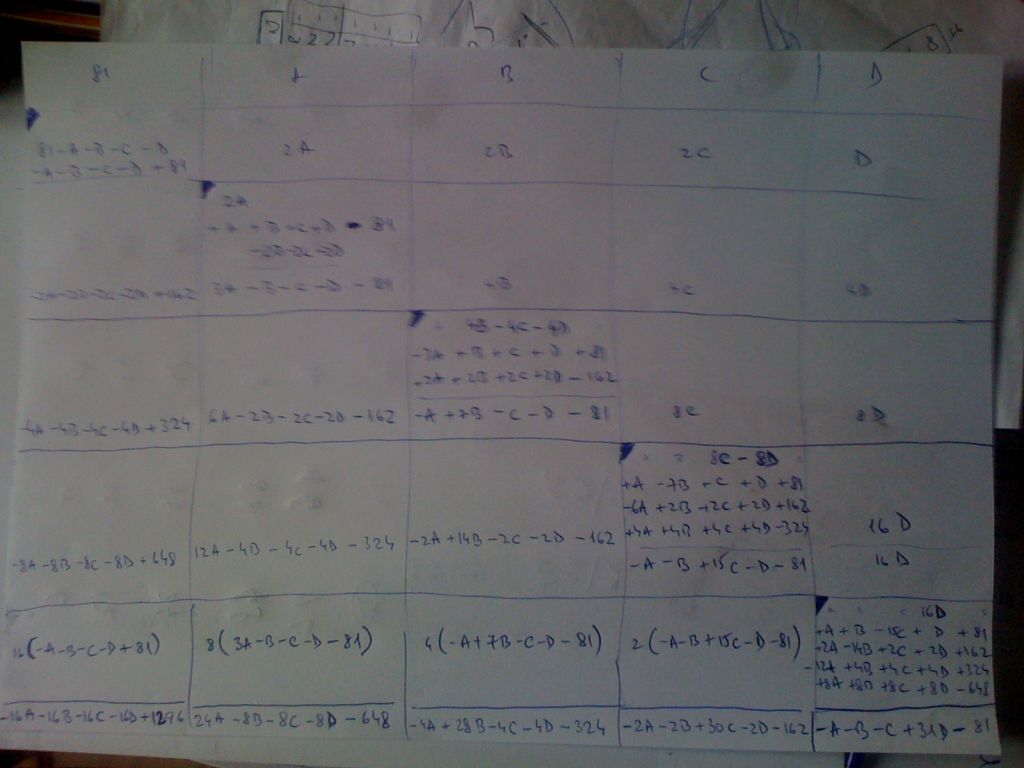 81 A B C D
81-A-B-C-D 2A 2B 2C D
-A-B-C-D+81
2A
+A+B+C+D-81
-2B-2C-2D
-2A-2B-2C-2D+162 3A-B-C-D-81 4B 4C 4D
4B-4C-4D
-3A+B+C+D+81
+2A+2B+2C+2D-162
-4A-4B-4C-4D+324 6A-2B-2C-2D-162 -A+7B-C-D-81 8C 8D
8C-8D
+A-7B+C+D+81
-6A+2B+2C+2D+162
+4A+4B+4C+4D-324 16D
-8A-8B-8C-8D+648 12A-4B-4C-4D-324 -2A+14B-2C-2D-162 -A-B+15C-D-81 16D
16D
+A+B-15C+D+81
+2A-14B+2C+2D+162
-12A+4B+4C+4D+324
+8A+8B+8C+8D-648
16(-A-B-C-D+81) 8(3A-B-C-D-81) 4(-A+7B-C-D-81) 2(-A-B+15C-D-81)
-16A-16B-16C-16D+1296 24A-8B-8C-8D-648 -4A+28B-4C-4D-324 -2A-2B+30C-2D-162 -A-B-C+31D-81